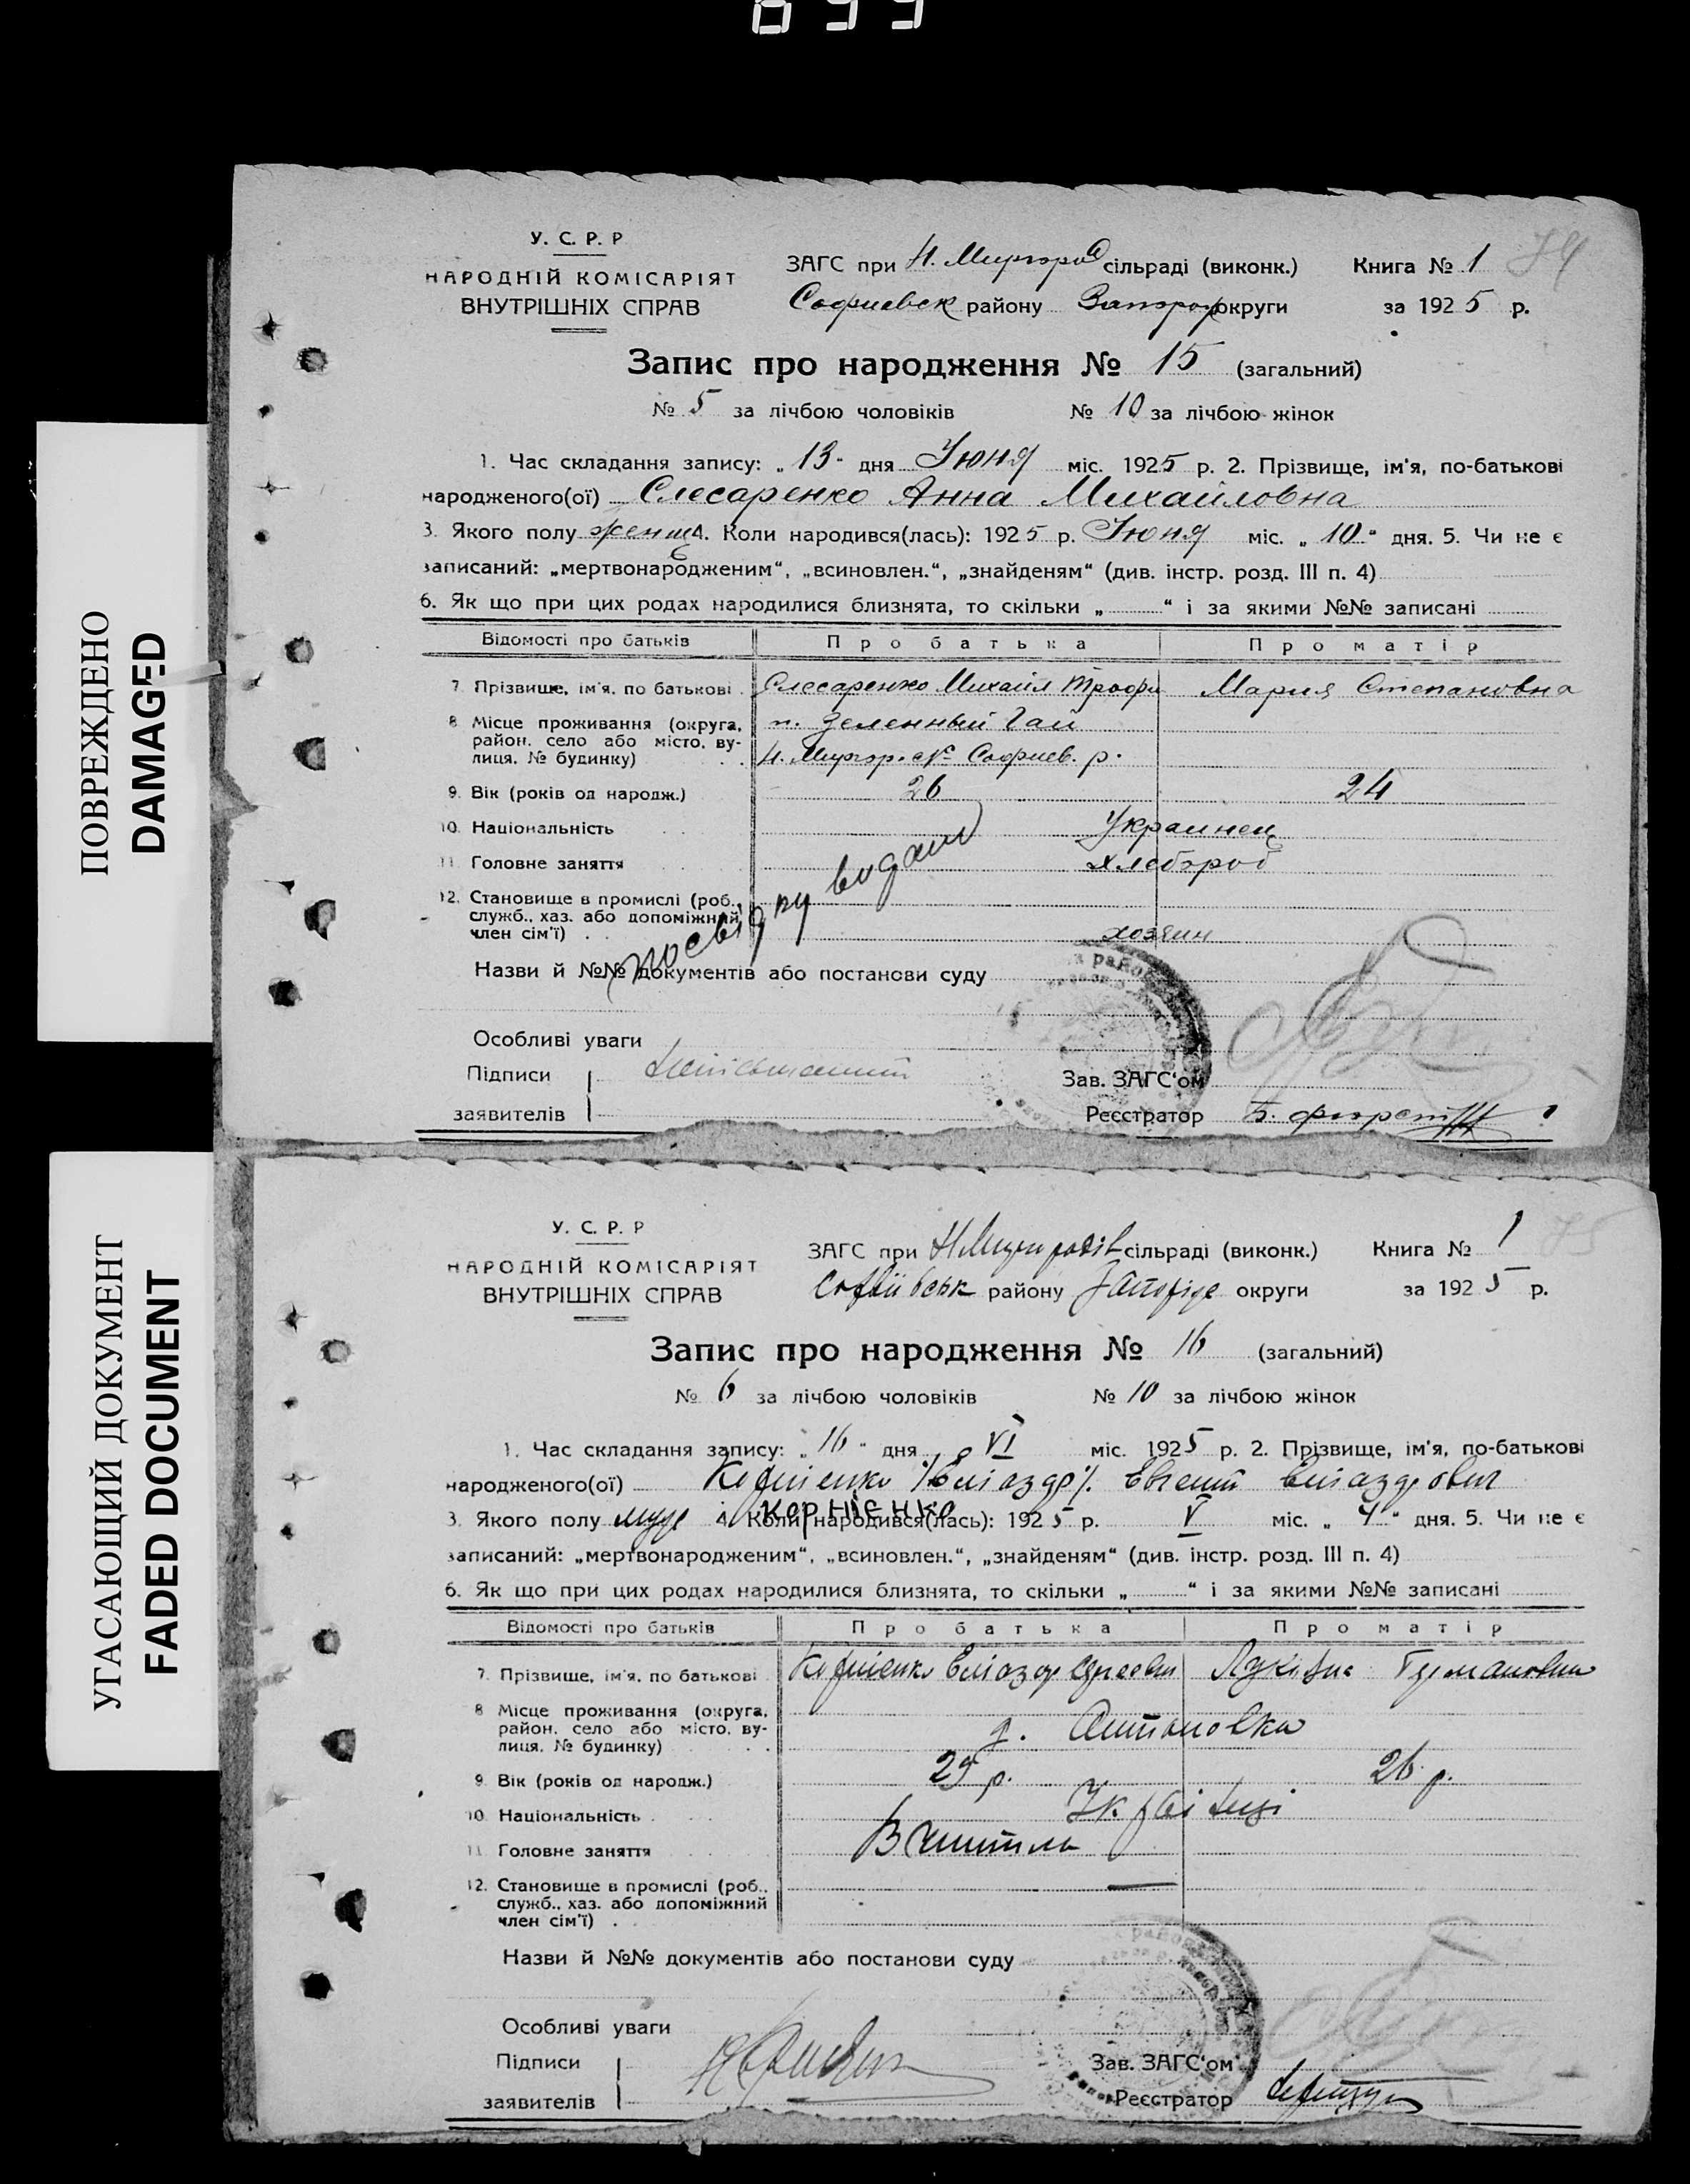 ПОВРЕЖДЕНО
DAMAGED
УГАСАЮЩИЙ ДОКУМЕНТ
FADED DOCUMENT
У. С. Р. Р
НАРОДНІЙ КОМІСАРІЯТ
ВНУТРІШНІХ СПРАВ
ЗАГС при Н. Миргород сільраді (виконк.) Книга № 1 74
Софиевск району Запорож округи за 1925 р.
Запис про народження № 15 (загальний)
№ 5 за лічбою чоловіків № 10 за лічбою жінок
1. Час складання запису: „ 13 " дня Июня міс. 1925 р. 2. Прізвище, ім'я, по-батькові
народженого(ої) Слесаренко Анна Михайловна
3. Якого полу женщ 4. Коли народився(лась): 1925 р. Июня міс. „ 10 " дня. 5. Чи не є
записаний: „мертвонародженим", „всиновлен.", „знайденям" (див. інстр. розд. III п. 4)
6. Як що при цих родах народилися близнята, то скільки „ " і за якими №№ записані
Відомості про батьків Про батька Про матір
7. Прізвище, ім'я, по батькові Слесаренко Михаил Трофи Мария Степановна
8. Місце проживання (округа, п. Зеленный Гай
район. село або місто, ву-
лиця, № будинку) Н. Миргор. с/с Софиев. р.
9. Вік (років од народж.) 26 24
10. Національність Украинец
11. Головне заняття хлебороб
12. Становище в промислі (роб.,
служб., хаз. або допоміжний
член сім'ї) хозяин
посвідку видано
Назви й №№ документів або постанови суду
Особливі уваги
Підписи
заявителів
Зав. ЗАГС'ом
Реєстратор
У. С. Р. Р
НАРОДНІЙ КОМІСАРІЯТ
ВНУТРІШНІХ СПРАВ
ЗАГС при Н Миргородів сільраді (виконк.) Книга № 1 75
Софіївськ району Запоріж округи за 1925 р.
Запис про народження № 16 (загальний)
№ 6 за лічбою чоловіків № 10 за лічбою жінок
1. Час складання запису: „ 16 " дня VI міс. 1925 р. 2. Прізвище, ім'я, по-батькові
народженого(ої) Корнієнко Евгений
Корнієнко
3. Якого полу муж 4. Коли народився(лась): 1925 р. V міс. „ 4 " дня. 5. Чи не є
записаний: „мертвонародженим", „всиновлен.", „знайденям" (див. інстр. розд. III п. 4)
6. Як що при цих родах народилися близнята, то скільки „ " і за якими №№ записані
Відомості про батьків Про батька Про матір
7. Прізвище, ім'я, по батькові Корнієнко
8. Місце проживання (округа, д. Антановка
район. село або місто, ву-
лиця, № будинку)
9. Вік (років од народж.) 29 р. 26 р.
10. Національність Українці
11. Головне заняття Вчитиль
12. Становище в промислі (роб., —
служб., хаз. або допоміжний
член сім'ї)
Назви й №№ документів або постанови суду
Особливі уваги
Підписи
заявителів
Зав. ЗАГС'ом
Реєстратор